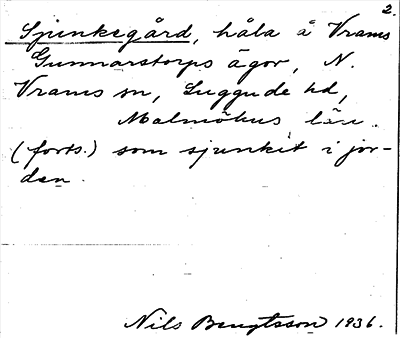 2.
Sjunkegård, håla å Vrams
Gunnarstorps ägor, N.
Vrams sn, Luggude hd,
Malmöhus län.
(forts.) som sjunkit i jor-
den.
Nils Bengtsson 1936.